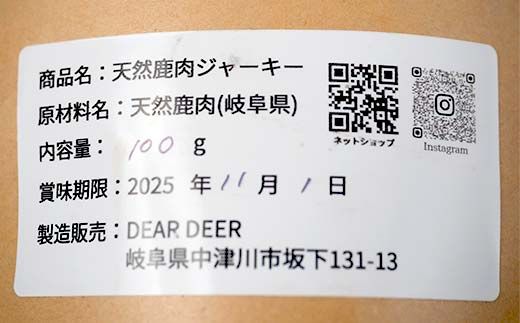 商品名：天然鹿肉ジャーキー
原材料名：天然鹿肉(岐阜県)
内容量：100 g
賞味期限：2025 年 11 月 1 日
製造販売：DEAR DEER
岐阜県中津川市坂下131-13
ネットショップ
Instagram